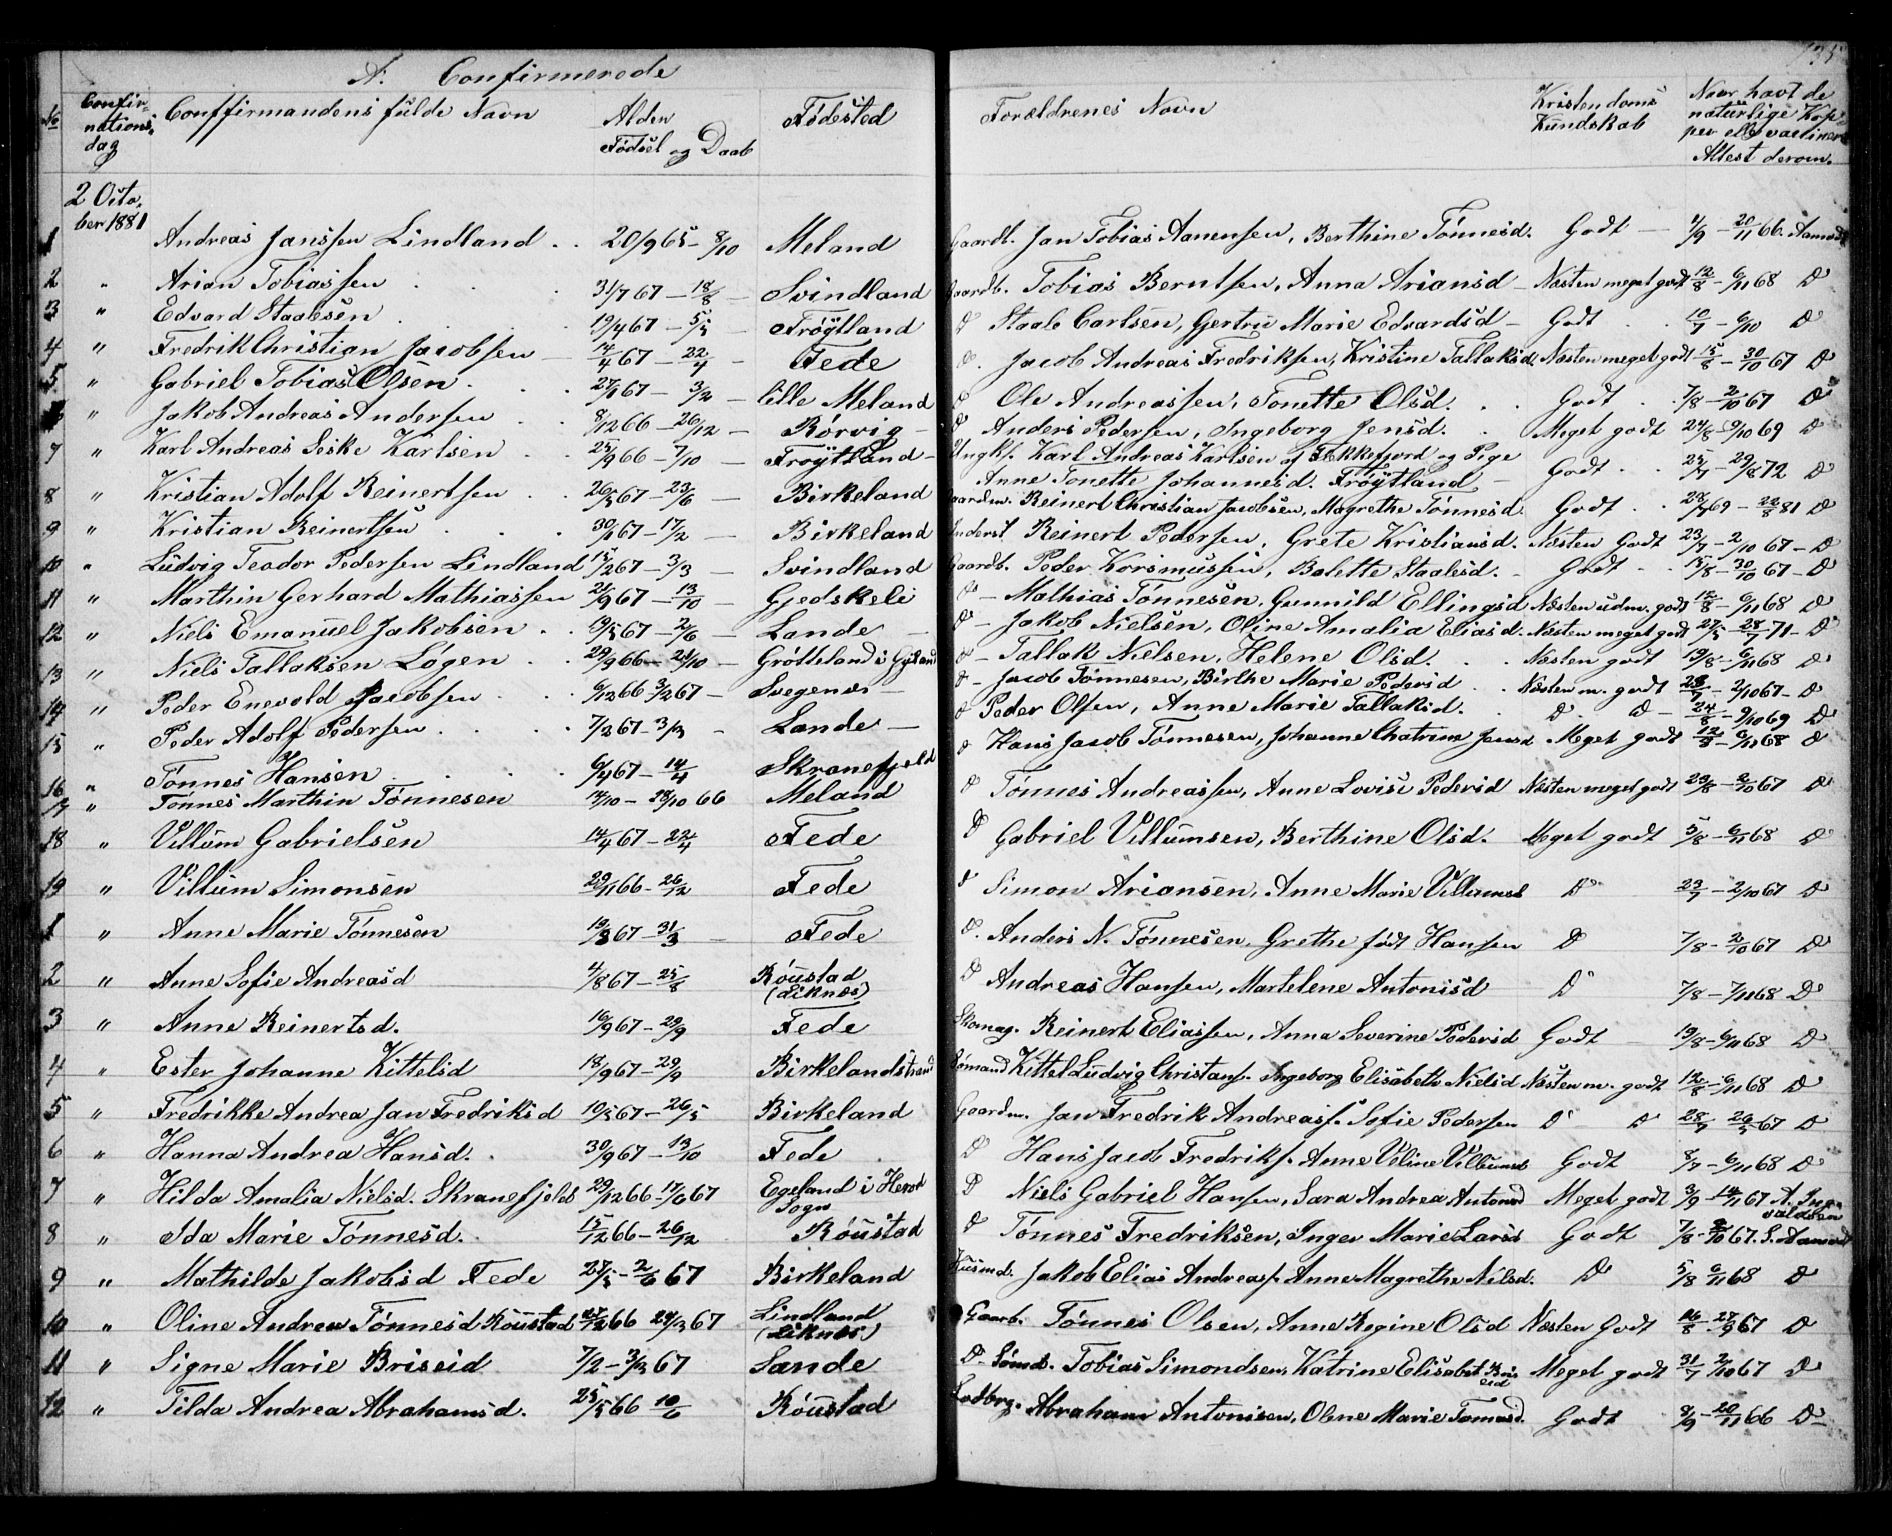 A: Confirmerede
No Confir-
nations-
dag Conffirmandens fulde Navn Alder
Fødsel og Daab Fødested Forældrenes Navn Kristendoms
Kundskab Naar havt de
naturlige Kop-
per elle vaccineret
Attest derom.
2 Octo-
ber 1881
1 Andreas Janssen Lindland . . 20/9 65 - 8/10 Meland Gaardb. Jan Tobias Aanensen, Berthine Tønnesd. Godt - 4/9 - 20/11 66. Aamodt
2 " Arian Tobiassen 31/7 67 - 18/8 - Svindland Gaardb. Tobias Berntsen, Anna Ariansd - Næsten meget godt 12/8 - 6/11 68 D
3 " Edvard Staalesen 19/4 67 - 5/5 - Frøytland D Staale Carlsen, Gertru Marie Edvardsd - Godt . . 10/7 - 6/10 D
4 " Fredrik Christian Jacobsen - 14/4 67 - 22/4 - Fede D. Jacob Andreas Fredriksen, Kristine Tallaksd. Næsten meget godt 15/8 - 30/10 67 D
5 " Gabriel Tobias Olsen . 27/1 67 - 3/2 - lille Meland D Ole Andreassen, Tonette Olsd. . . Godt . . 7/8 - 2/10 67 D
6 " Jakob Andreas Andersen . . 8/12 66 - 26/12 - Rørvig - D Anders Pedersen, Ingeborg Jensd. . Meget godt 24/8 - 9/10 69 D
7 " Karl Andreas Seske Karlsen . . 25/9 66 - 7/10 - Frøytland - Ungk. Karl Andreas Karlsen af Flekkefjord og Pige
Anne Tonette Johannesd. Frøytland - Godt . . 25/7 - 29/8 72 D
8 " Kristian Adolf Reinertsen . . 26/5 67 - 23/6 - Birkeland Gaardm. Reinert Christian Jacobsen, Magrethe Tønnesd. Godt . . 69 - 22/8 81 D
9 " Kristian Reinertsen . . 30/1 67 - 17/2 - Birkeland Inderst. Reinert Pedersen, Grete Kristiansd. Næsten Godt 23/7 - 2/10 67 - D
10 " Ludvig Teodor Pedersen Lindland 15/2 67 - 3/3 - Svindland Gaardb. Peder Korsmussen, Balette Staalesd. - Godt . . 15/8 - 30/10 67 - D
11 " Marthin Gerhard Mathiassen 21/9 67 - 13/10 - Gjedskeli D - Mathias Tønnesen, Gunnild Ellingsd Næsten udm. godt 12/8 - 6/11 68 D
12 " Niels Emanuel Jakobsen . . 19/5 67 - 2/6 - Lande - D - Jakob Nielsen, Oline Amalia Eliasd. Næsten meget godt 27/5 - 28/7 71 - D
13 " Niels Tallaksen Løgen . . 29/9 66 - 21/10 - Grøtteland i Gyland D - Tallak Nielsen, Helene Olsd. . . Næsten godt 19/8 - 6/11 68 D
14 " Peder Enevold Jacobsen . . 6/12 66 3/2 67 - Svegenes - D - Jacob Tønnesen, Birthe Marie Pedersd . . Næsten m. godt 23/7 - 2/10 67 - D
15 " Peder Adolf Pedersen . . . 7/2 67 - 3/3 - Lande - D Peder Olsen, Anne Marie Tallaksd. D D - 24/8 - 9/10 69 D
16 " Tønnes Hansen . . 6/4 67 - 14/4 Skranefjeld D Hans Jacob Tønnesen, Johanne Chatrine Jensd Meget godt 12/8 - 6/11 68 D
17 " Tønnes Marthin Tønnesen 14/10 - 28/10 66 Meland D Tønnes Andreassen, Anne Lovise Pedersd Næsten meget godt 23/8 - 2/10 67 D
18 " Villum Gabrielsen 14/4 67 - 22/4 Fede D Gabriel Villumsen, Berthine Olsd. Meget godt 5/8 - 6/11 68 D
19 " Villum Simonsen 29/11 66 - 26/12 Fede D Simon Ariansen, Anne Marie Villumsd D 23/7 - 2/10 67 D
1 " Anne Marie Tønnesen 19/3 67 - 31/3 - Fede D. Anders N. Tønnesen, Grethe født Hansen D 7/8 - 2/10 67 D
2 " Anne Sofie Andreasd 4/8 67 - 25/8 Røustad
(Liknes) D Andreas Hansen, Martelene Antonisd D 7/8 - 7/11 68 D
3 " Anne Reinertsd. 16/9 67 - 29/9 Fede Skomag. Reinert Eliassen, Anna Severine Pedersd Godt - 19/8 - 6/11 68 D
4 " Ester Johanne Kittelsd 18/9 67 - 29/9 Birkelandstrand Sømand Kittel Ludvig Christans. Ingeborg Elisabeth Nielsd Næsten m. godt 12/8 - 6/11 68 D
5 " Fredrikke Andrea Jan Fredriksd 10/5 67 - 26/5 Birkeland Gaardm. Jan Fredrik Andreass. Sofie Pedersen D D 28/7 29/5 67 D
6 " Hanna Andrea Hansd. . 30/9 67 - 13/10 Fede D Hans Jacob Fredriks. Anne Veline Villumsd Godt 8/7 - 6/11 68 D
7 " Hilda Amalia Nielsd. Skranefjeld 29/12 66 - 17/6 67 Egeland i Herad
Sogn D Niels Gabriel Hansen, Sara Andrea Antonsd Meget godt 3/9 - 14/11 67 A. Ing-
valdsen
8 " Ida Marie Tønnesd. 15/12 66 - 26/12 Røustad D Tønnes Fredriksen, Inger Marie Larsd Godt 7/8 - 2/10 67. S. Aamodt
9 " Mathilde Jakobsd Fede 27/5 - 2/6 67 Birkeland Husmd. Jakob Elias Andreass. Anne Magrethe Nilsd. D 5/8 6/11 68 D
10 " Oline Andrea Tønnesd Røustad 25/12 66 24/3 67 Lindland
(Liknes) Gaarb. Tønnes Olsen, Anne Regine Olsd Næsten Godt 16/8 - 27/9 67 D
11 " Signe Marie Briseid 7/2 - 3/3 67 Sande D Sømd. Tobias Simondsen, Katrine Elisabet Bris
eid Meget godt 31/7 2/10 67 D
12 " Tilda Andrea Abrahamsd. 25/5 66 10/6 Røustad Abraham Antonisen, Oline Marie Tomasd. Godt 9/9 - 20/11 66 D -